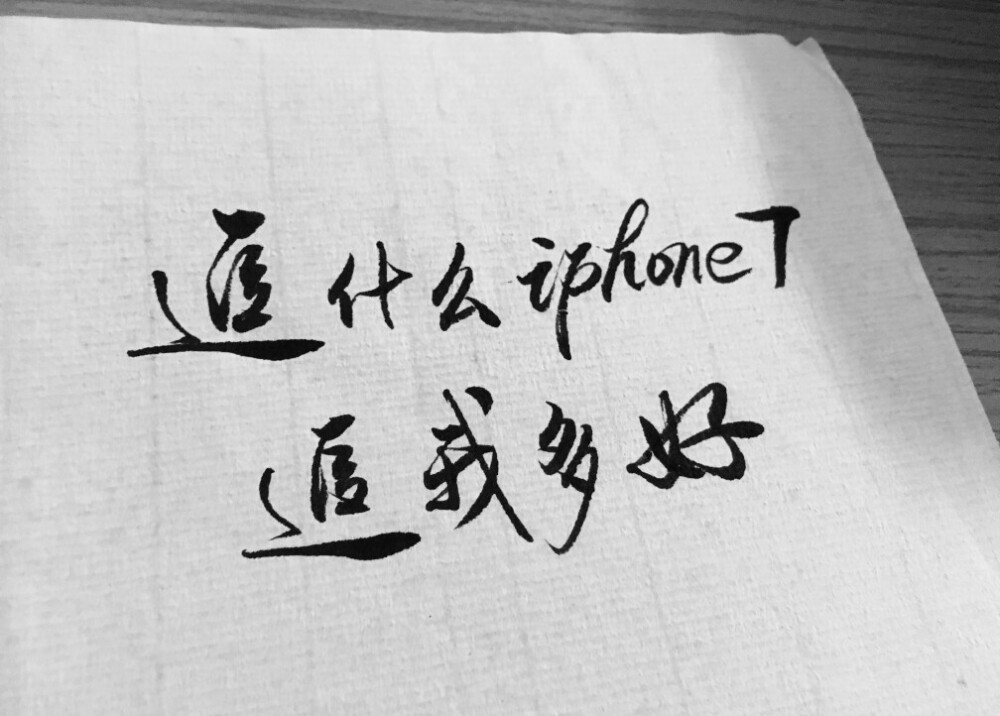 追什么iphone7
追我多好